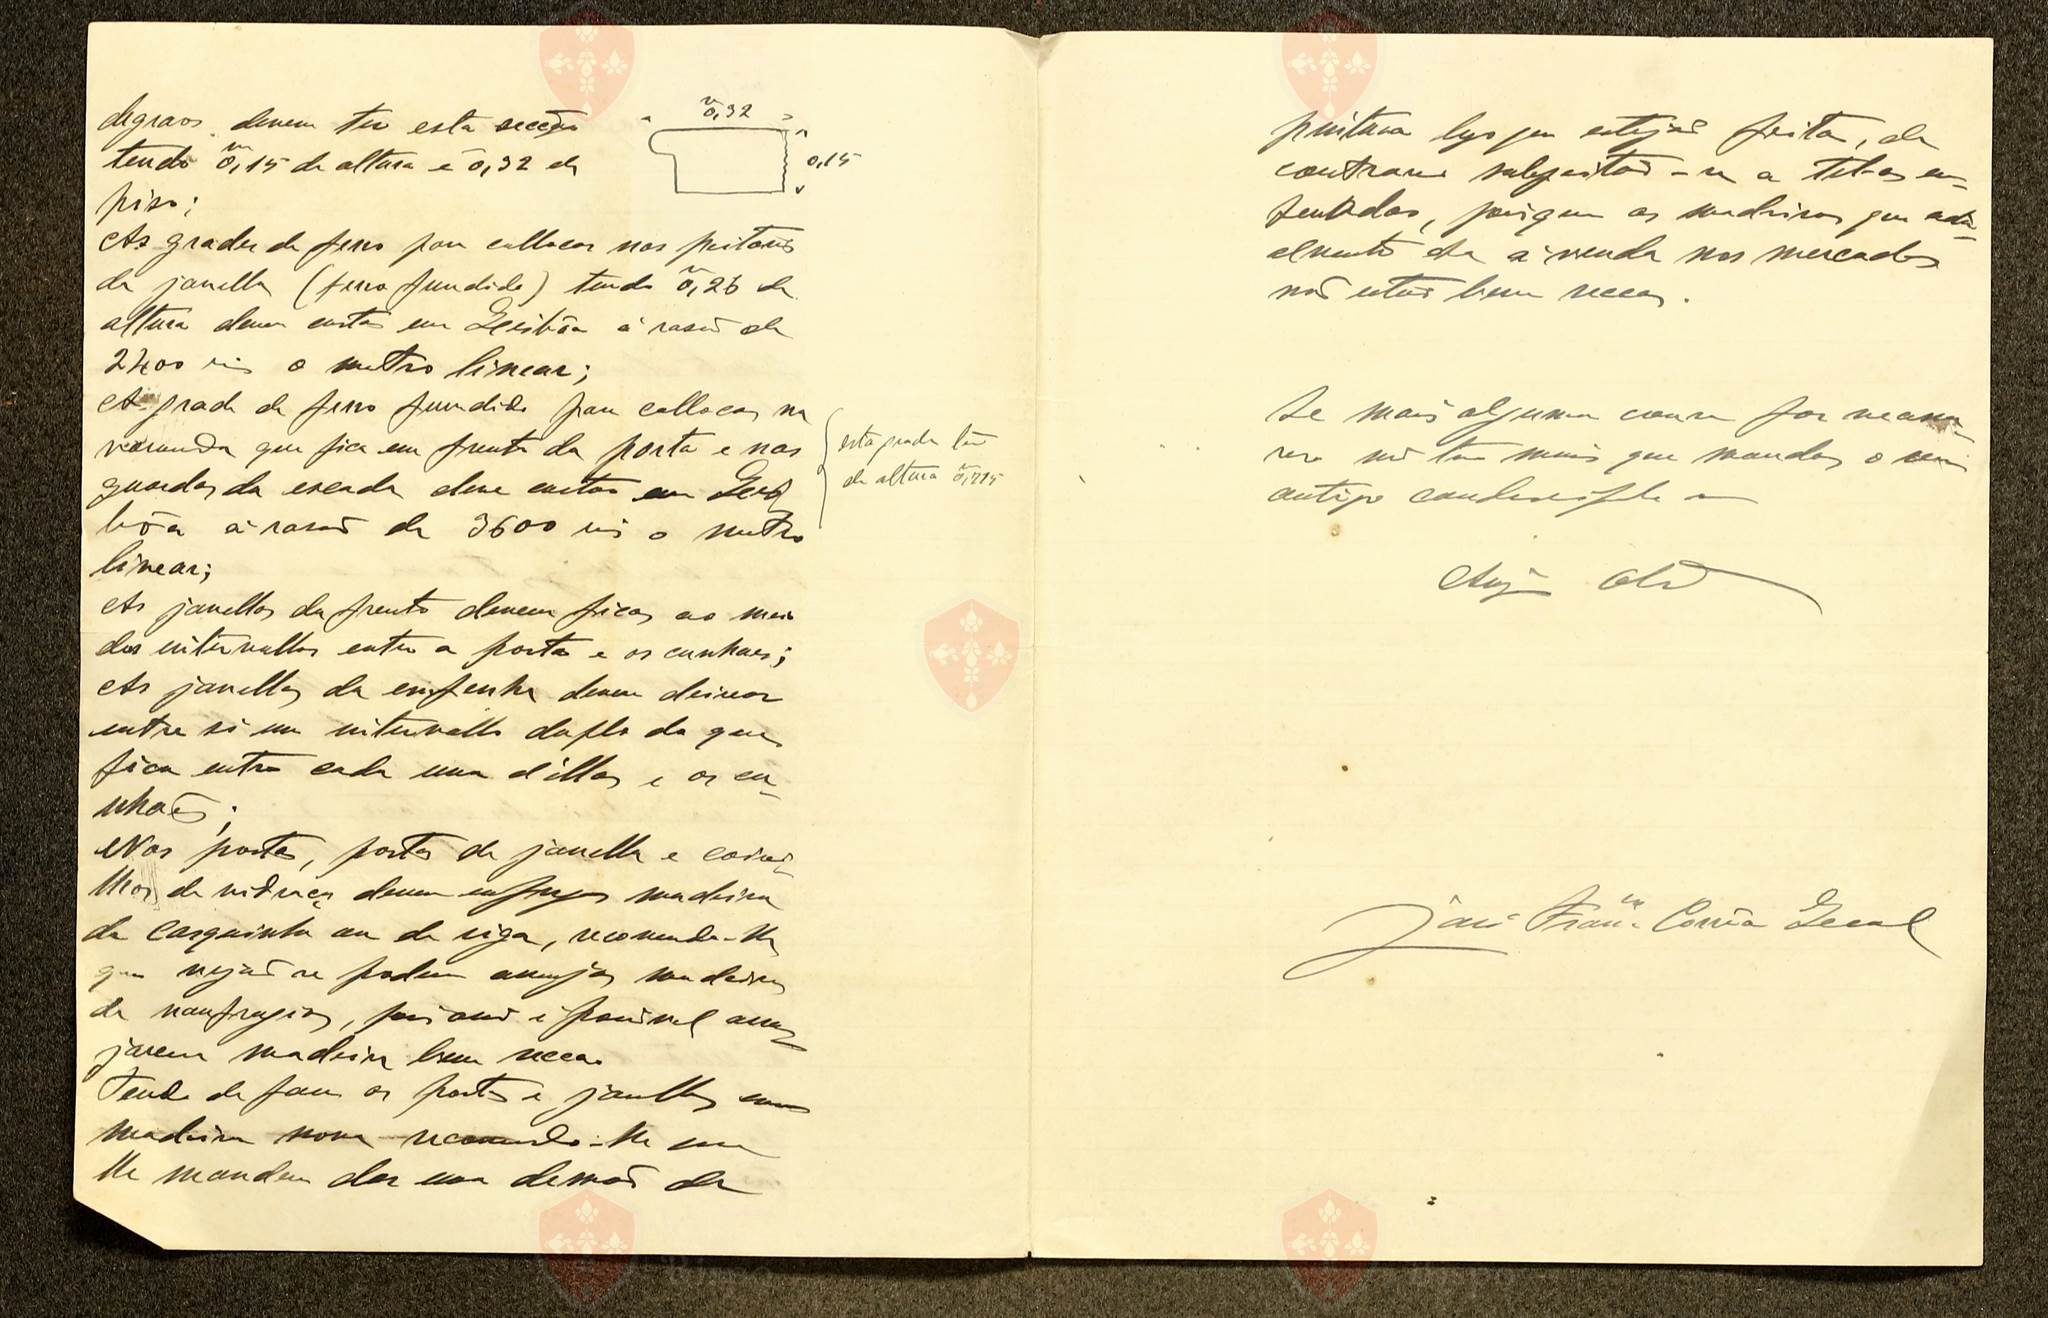 degraos devem ter esta secção
tendo 0,15 de altura e 0,32 de
piso;
m
0,32
0,15
As grades de ferro para collocar nos peitoris
da janella (ferro fundido) tendo 0,26 de
altura devem custar em Lisbôa á rasão de
2400 reis o metro linear;
A grade de ferro fundido para collocar na
varanda que fica em frente da porta e nas
guardas da escada deve custar em Lis-
bôa á rasão de 3600 reis o metro
linear;
esta grade tem
de altura 0,715
As janellas da frente devem ficar ao meio
dos intervallos entre a porta e os cunhaes;
As janellas da empenha devem deixar
entre si um intervallo duplo do que
fica entre cada uma d'ellas e os cu-
nhaes;
Nas portas, portas de janella e caixi-
lhos de vidraça devem empregar madeira
de casquinha ou de riga, recomendo-lhe
que vejão se podem arranjar madeira
de naufragios, pois assim é possivel arran-
jarem madeira bem secca.
Tendo de fazer as portas e janellas com
madeira nova recomendo-lhe que
lhe mandem dar uma demão de
pintura logo que estejão feitas, do
contrario sujeitão-se a tel-as em-
penadas, porque as madeiras que actu-
almente ha á venda nos mercados
não estão bem seccas.
Se mais alguma cousa for necessa-
rio não tem mais que mandar o seu
antigo condiscipulo e
Amigo Obrdo
José Franco Corrêa Leal